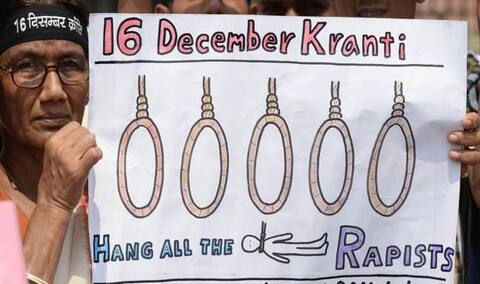 16 दिसम्बर
16 December Kranti
HANG ALL THE RAPISTS